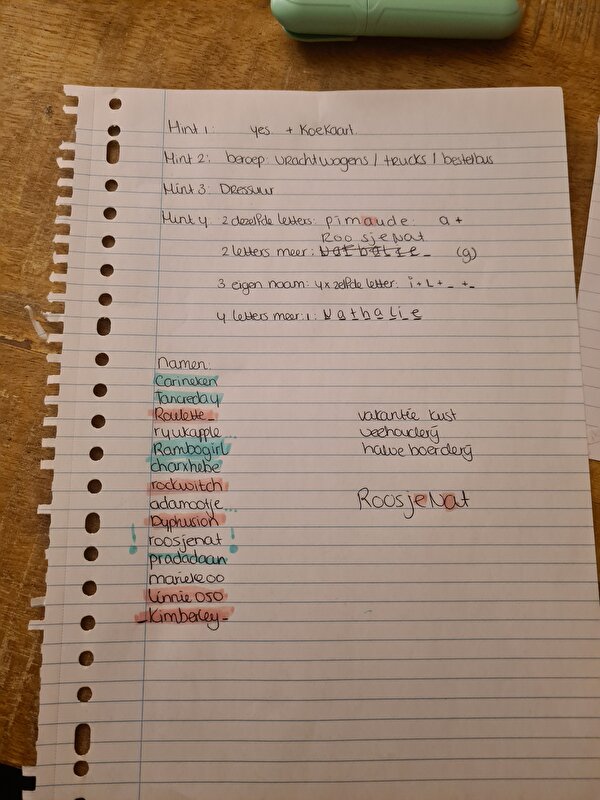 Hint 1: yes + Koekaart.
Hint 2: beroep: vrachtwagens / trucks / bestelbus
Hint 3: Dressuur
Hint 4: 2 dezelfde letters: pimaude: a +
RoosjeNat
2 letters meer: Nathalie_ (g)
3 eigen naam: 4x zelfde letter: i + L + _ + _
4 letters meer: 1: Nathalie
Namen:
Carineken
Tancreday
Roulette_
ryukapple...
Rambogirl
charxhebe
rockwitch
adamootje...
Dyphusion
! roosjenat !
pradadaan
marieke00
Linnie050
_Kimberley_
vakantie kust
veehouderij
halve boerderij
RoosjeNat